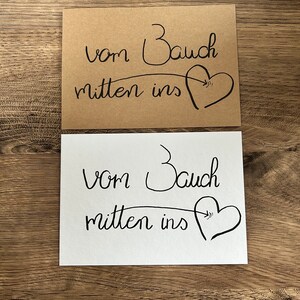 vom Bauch
mitten ins
vom Bauch
mitten ins